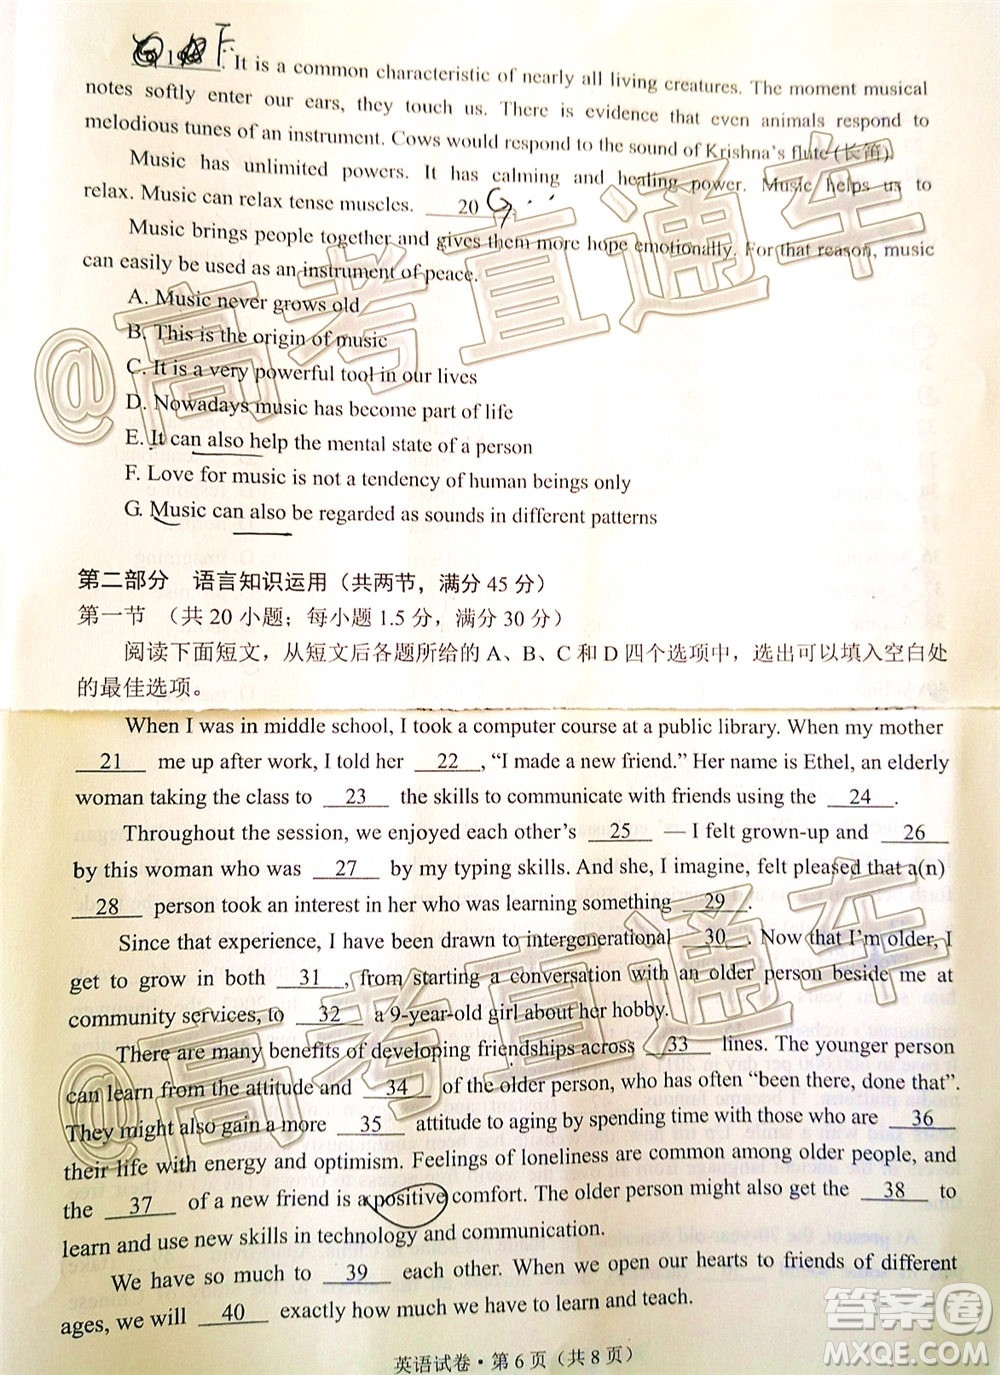 19 F. It is a common characteristic of nearly all living creatures. The moment musical
notes softly enter our ears, they touch us. There is evidence that even animals respond to
melodious tunes of an instrument. Cows would respond to the sound of Krishna's flute (长笛).
Music has unlimited powers. It has calming and healing power. Music helps us to
relax. Music can relax tense muscles. 20 G.
Music brings people together and gives them more hope emotionally. For that reason, music
can easily be used as an instrument of peace.
A. Music never grows old
B. This is the origin of music
C. It is a very powerful tool in our lives
D. Nowadays music has become part of life
E. It can also help the mental state of a person
F. Love for music is not a tendency of human beings only
G. Music can also be regarded as sounds in different patterns
第二部分 语言知识运用（共两节，满分 45 分）
第一节 （共 20 小题；每小题 1.5 分，满分 30 分）
阅读下面短文，从短文后各题所给的 A、B、C 和 D 四个选项中，选出可以填入空白处
的最佳选项。
When I was in middle school, I took a computer course at a public library. When my mother
21 me up after work, I told her 22, “I made a new friend.” Her name is Ethel, an elderly
woman taking the class to 23 the skills to communicate with friends using the 24.
Throughout the session, we enjoyed each other's 25 — I felt grown-up and 26
by this woman who was 27 by my typing skills. And she, I imagine, felt pleased that a(n)
28 person took an interest in her who was learning something 29.
Since that experience, I have been drawn to intergenerational 30. Now that I'm older, I
get to grow in both 31, from starting a conversation with an older person beside me at
community services, to 32 a 9-year-old girl about her hobby.
There are many benefits of developing friendships across 33 lines. The younger person
can learn from the attitude and 34 of the older person, who has often “been there, done that”.
They might also gain a more 35 attitude to aging by spending time with those who are 36
their life with energy and optimism. Feelings of loneliness are common among older people, and
the 37 of a new friend is a positive comfort. The older person might also get the 38 to
learn and use new skills in technology and communication.
We have so much to 39 each other. When we open our hearts to friends of different
ages, we will 40 exactly how much we have to learn and teach.
英语试卷·第 6 页（共 8 页）
@高考直通车
@高考直通车
答案圈
MXQE.COM